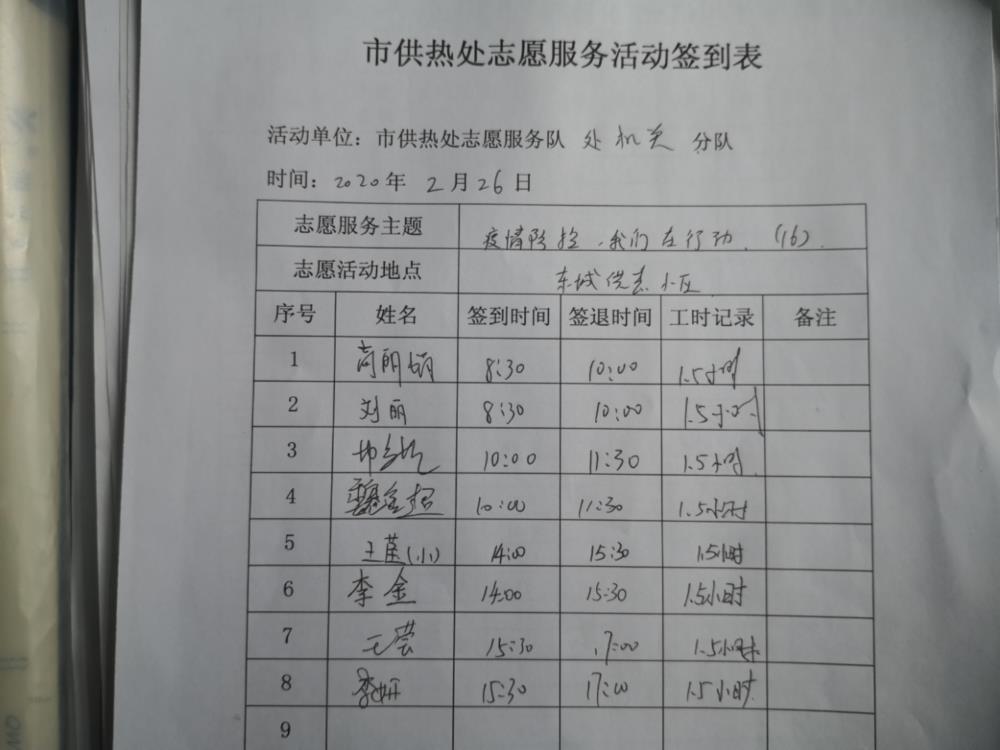 市供热处志愿服务活动签到表
活动单位：市供热处志愿服务队 处机关 分队
时间：2020年 2月26日
志愿服务主题 疫情防控，我们在行动．（16）．
志愿活动地点 东城供热小区
序号 姓名 签到时间 签退时间 工时记录 备注
1 8:30 10:00 1.5小时
2 刘丽 8:30 10:00 1.5小时
3 10:00 11:30 1.5小时
4 10:00 11:30 1.5小时
5 14:00 15:30 1.5小时
6 李金 14:00 15:30 1.5小时
7 15:30 17:00 1.5小时
8 李妍 15:30 17:00 1.5小时
9